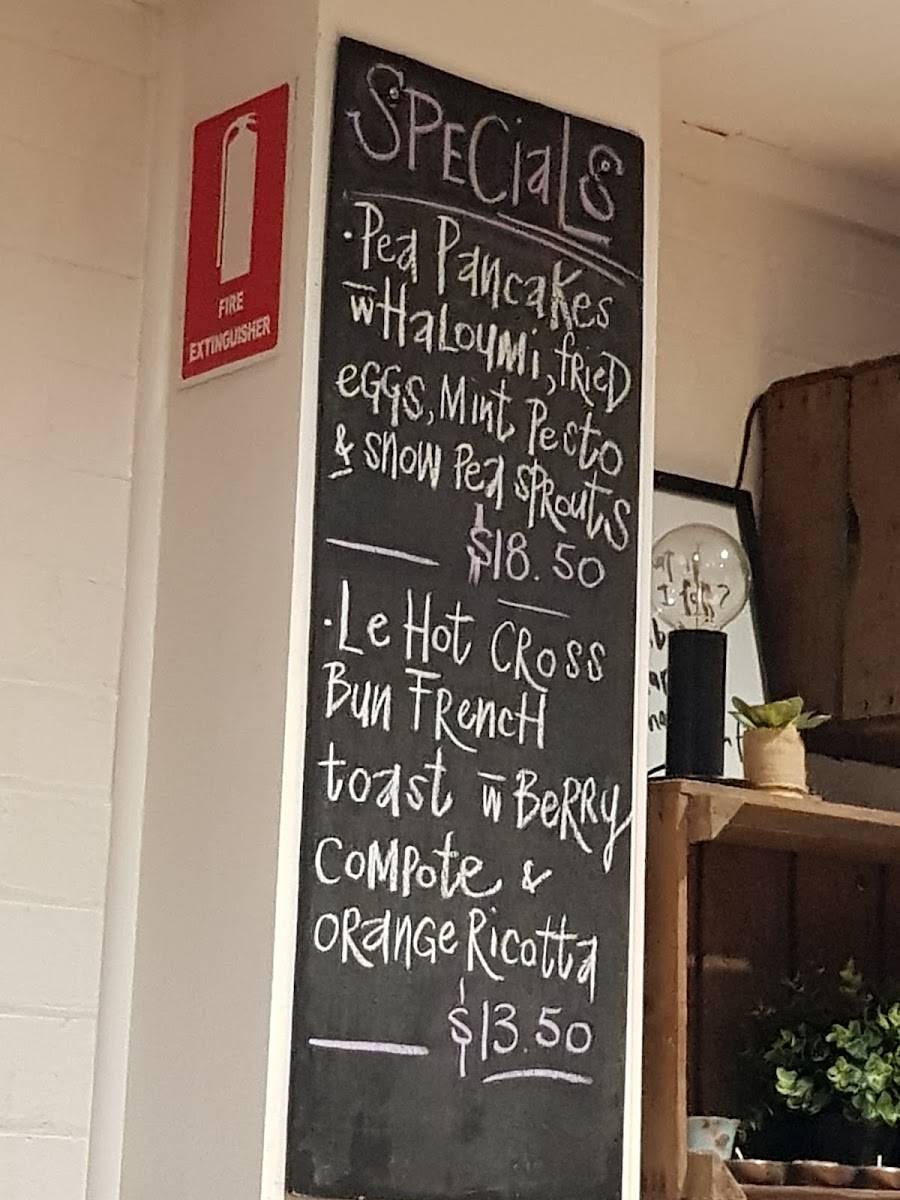 FIRE
EXTINGUISHER
SPECiaLS
·Pea Pancakes
w̅ HaLouMi, fRieD
eGGS, Mint Pesto
& snow Pea sPRoutS
$18.50
·Le Hot CRoss
Bun FRencH
toast w̅ BeRRy
CoMPote &
oRanGe Ricotta
$13.50
I fall?